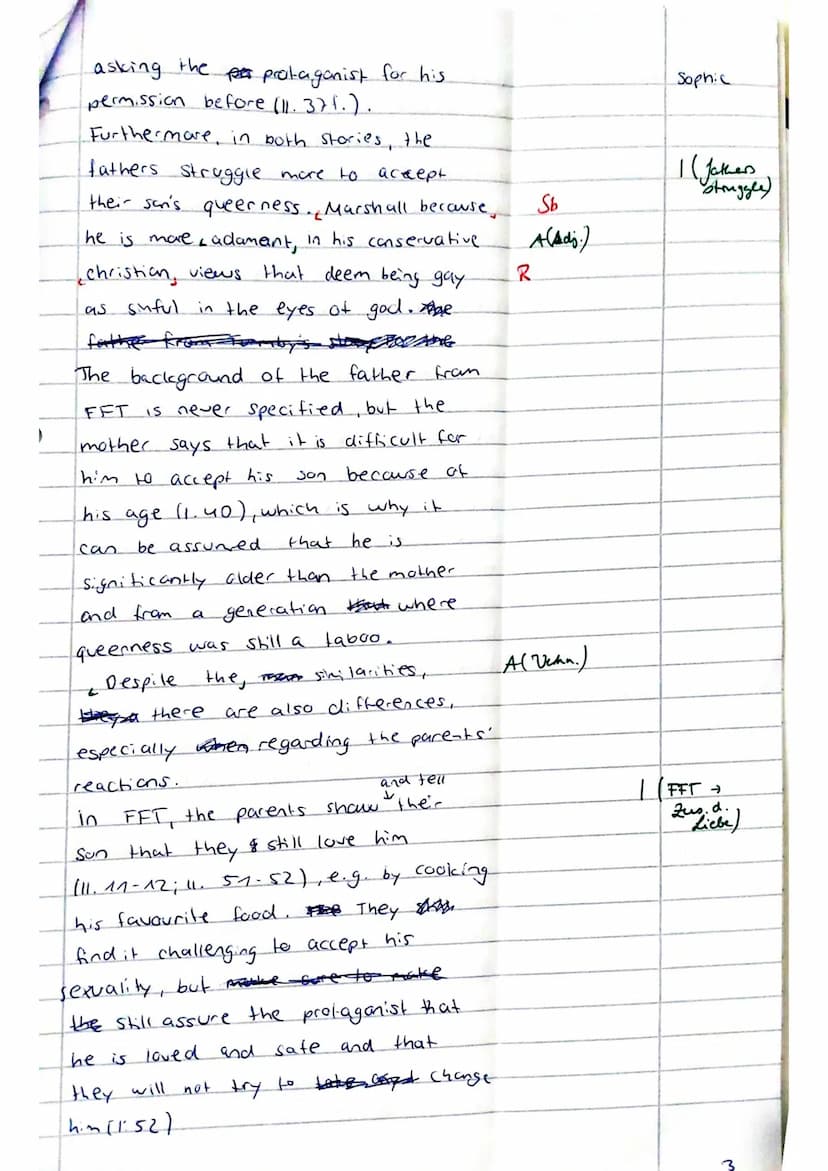 Sophie
asking the protagonist for his
permission before (ll. 37f.).
Furthermore, in both stories, the
fathers struggle more to accept
1 (fathers
struggle)
their son's queerness. Marshall because
Sb
he is more adamant, in his conservative
A(Adj.)
christian, views that deem being gay
R
as sinful in the eyes of god. the
father from Tomby's story too the
The background of the father from
FFT is never specified, but the
mother says that it is difficult for
him to accept his son because of
his age (l. 40), which is why it
can be assumed that he is
significantly older than the mother
and from a generation that where
queerness was still a taboo.
Despite the, similarities,
A(Verkn.)
there are also differences,
especially when regarding the parents'
reactions.
and tell
in FFT, the parents show their
1 (FFT →
Zus. d.
Liebe)
son that they still love him
(ll. 11-12; ll. 51-52), e.g. by cooking
his favourite food. The They
find it challenging to accept his
sexuality, but make sure to make
the still assure the protagonist that
he is loved and safe and that
they will not try to change
him (l. 52)
3